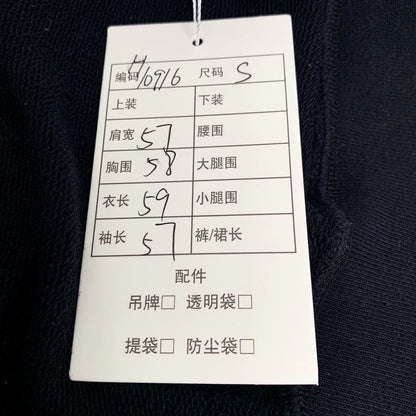 编码 H10916 尺码 S
上装 下装
肩宽 57 腰围
胸围 58 大腿围
衣长 59 小腿围
袖长 57 裤/裙长
配件
吊牌□ 透明袋□
提袋□ 防尘袋□